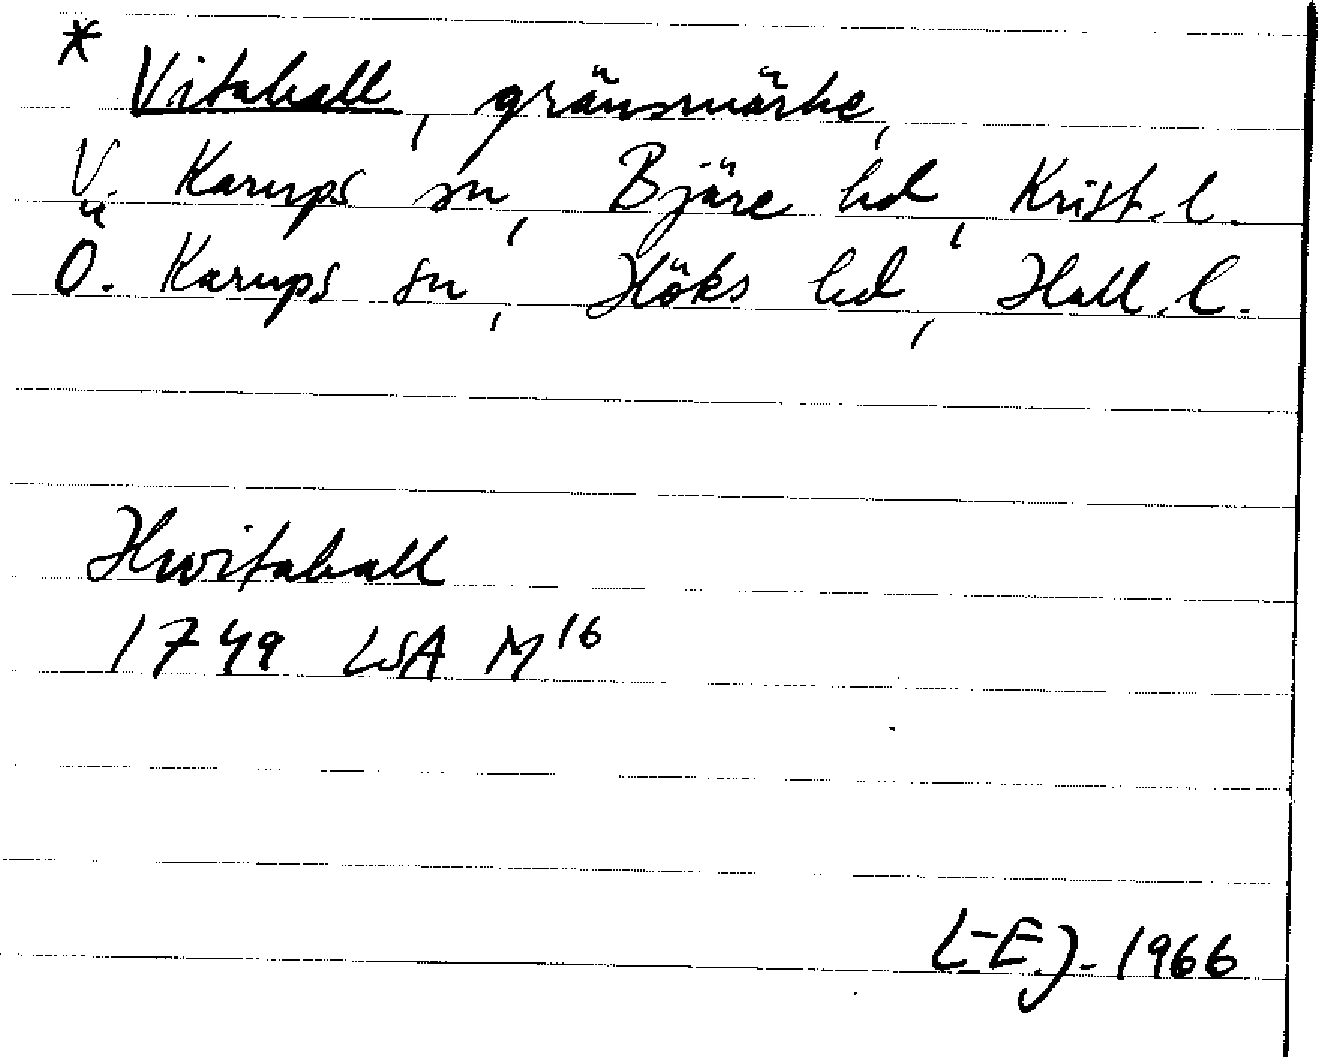 *
Vitahall, gränsmärke,
V. Karups sn, Bjäre hd, Krist. l.
Ö. Karups sn, Höks hd, Hall. l.
Hwitahall
1749 LSA M16
L-E J. 1966